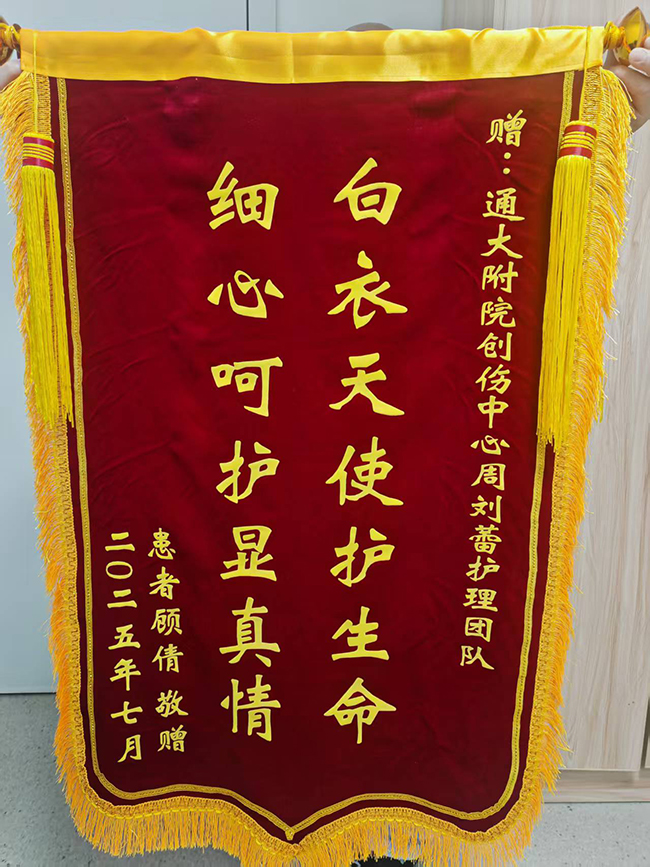 赠：通大附院创伤中心周刘蕾护理团队
白衣天使护生命
细心呵护显真情
患者顾倩 敬赠
二〇二五年七月